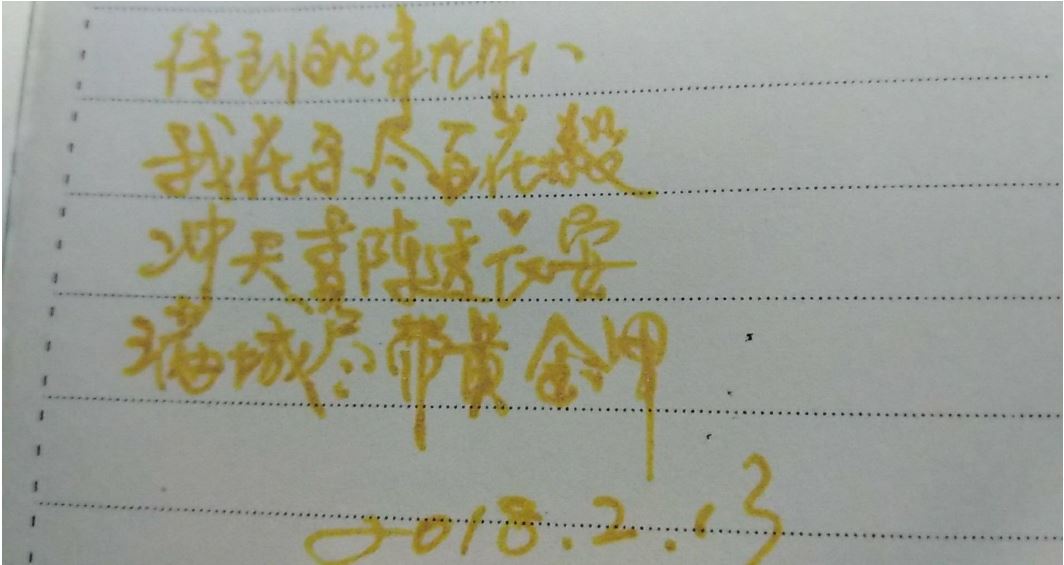 待到秋来九月八
我花开尽百花殺
冲天香阵透长安
满城尽带黄金甲
2018.2.13